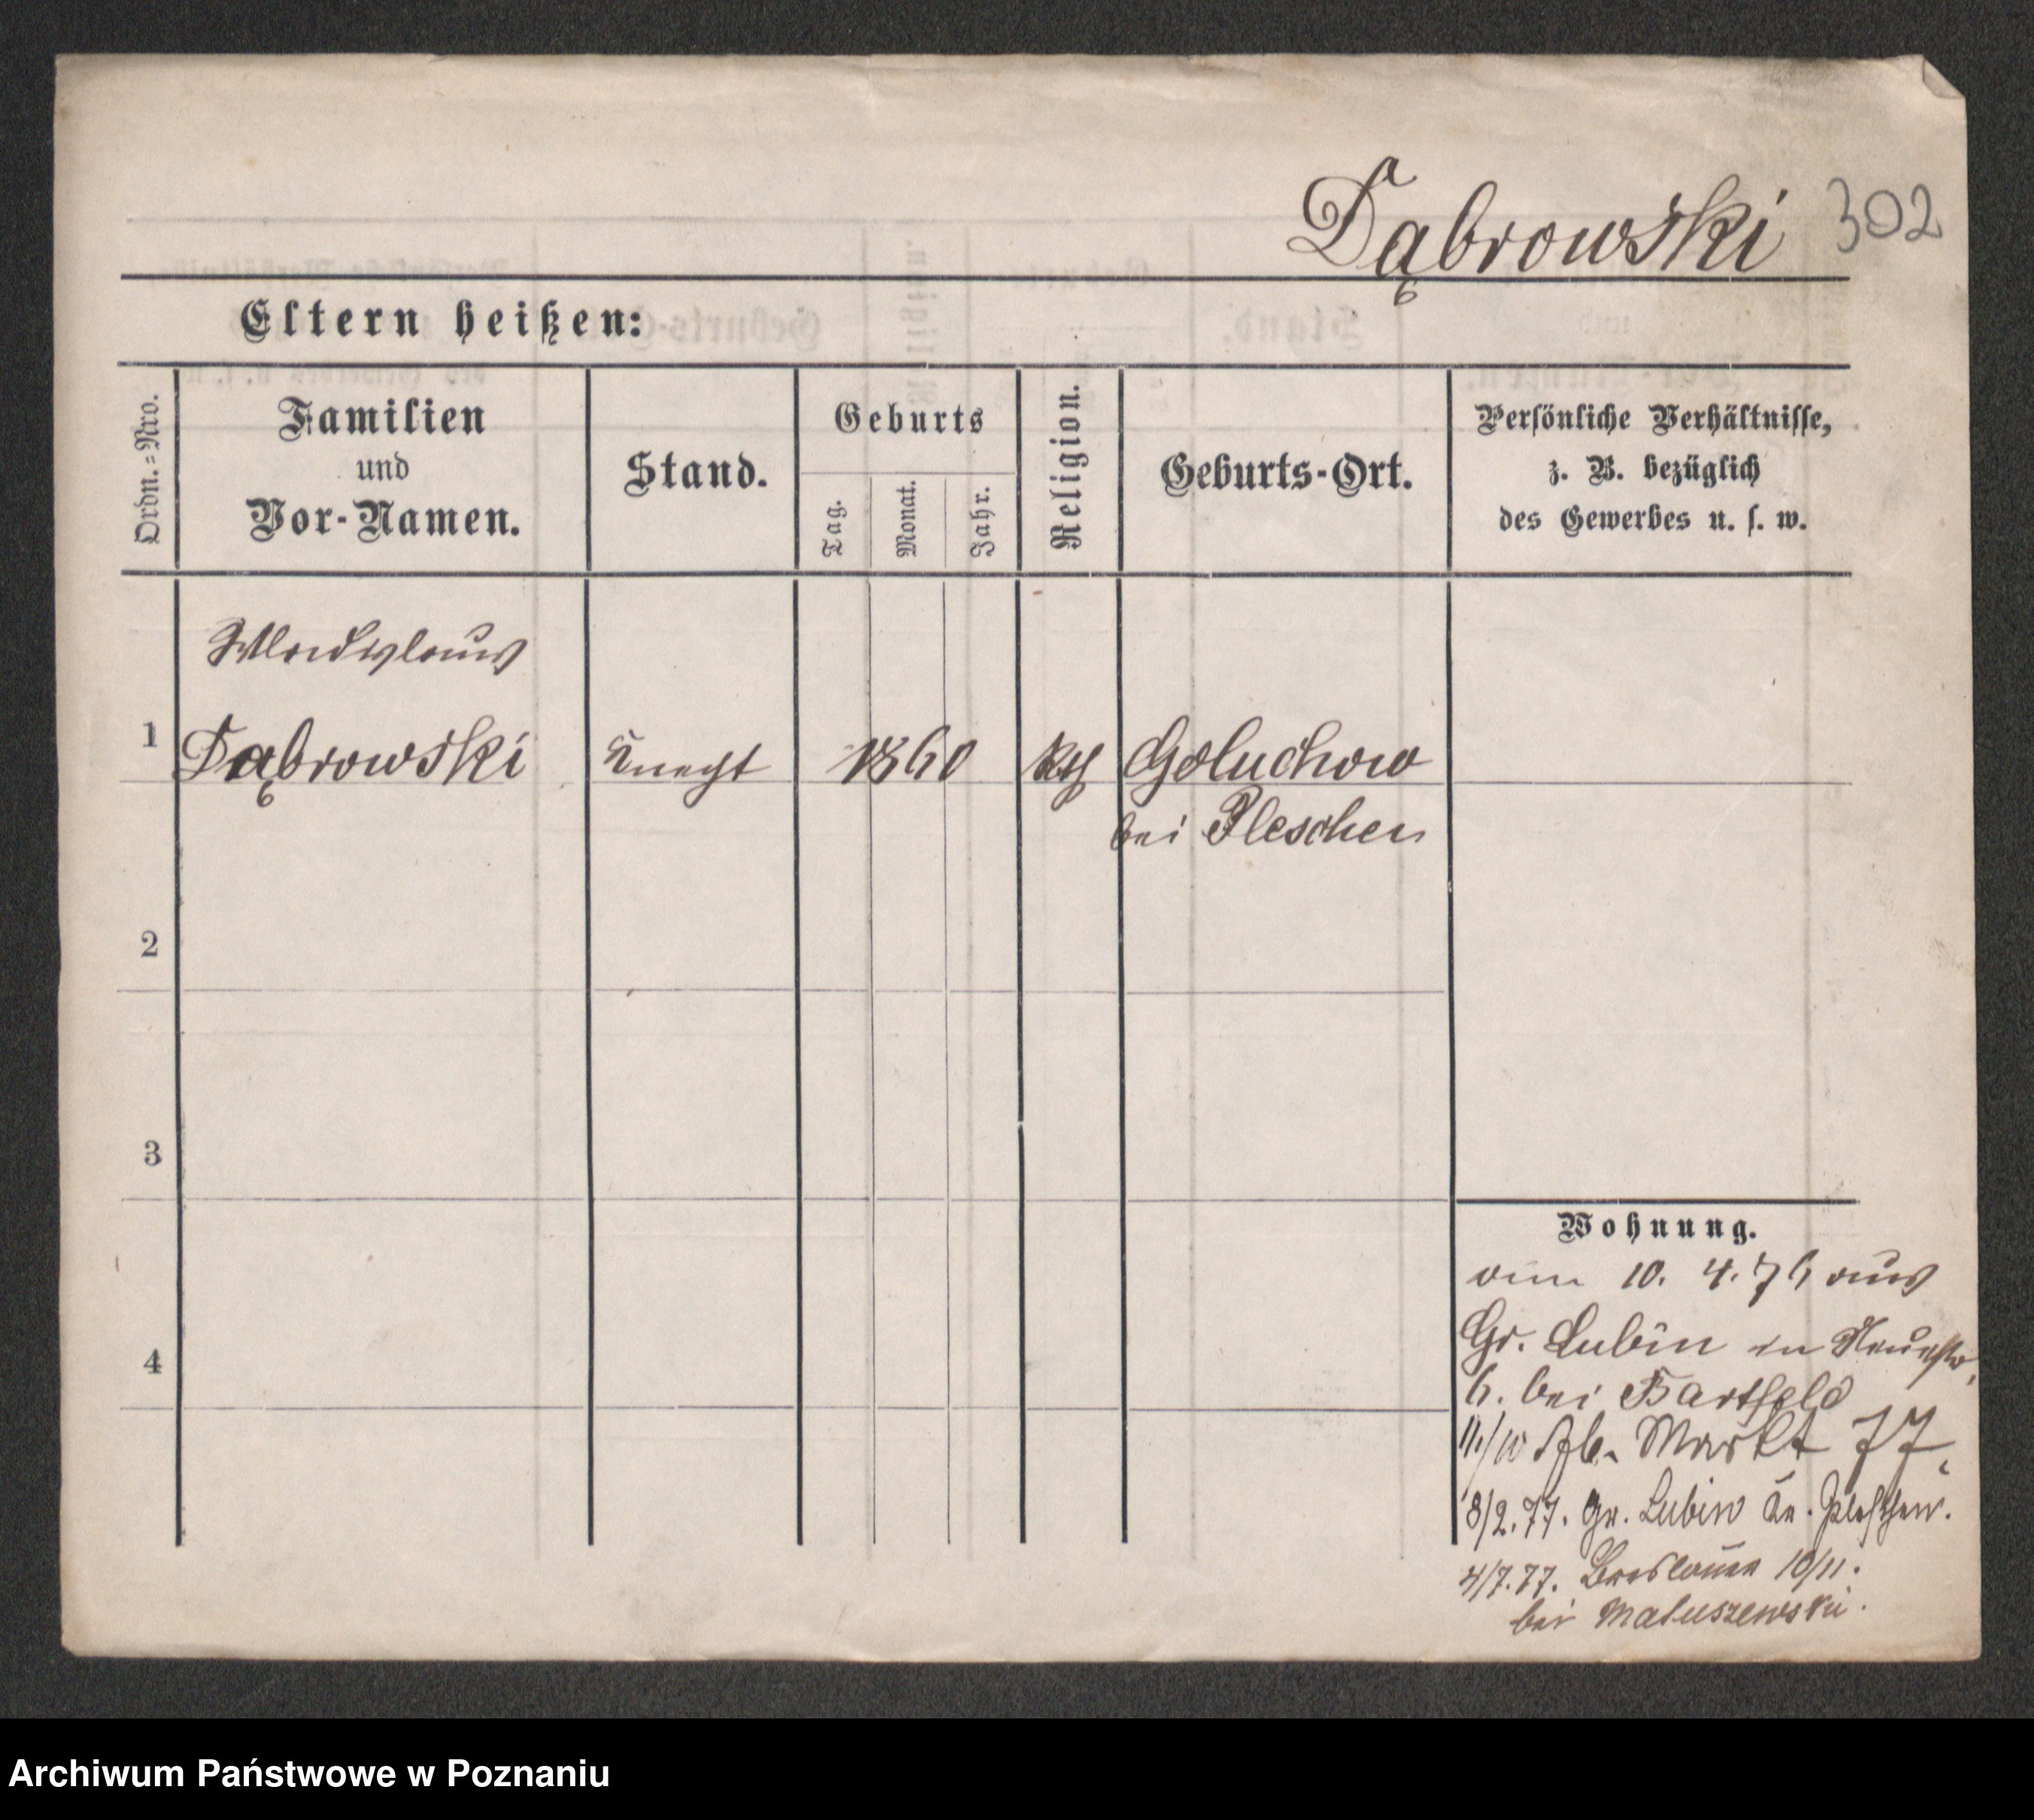 Dąbrowski 302
Eltern heißen:
Ordn.-Nro.
Familien
und
Vor-Namen.
Stand.
Geburts
Tag.
Monat.
Jahr.
Religion.
Geburts-Ort.
Persönliche Verhältnisse,
z. B. bezüglich
des Gewerbes u. s. w.
Wladislaus
1 Dąbrowski Knecht 1860 kth Goluchow
bei Pleschen
2
3
4
Wohnung.
vom 10. 4. 76 aus
Gr. Lubin in
6. bei Bartfeld
11/10 Markt 77.
8/2. 77. Gr. Lubin Kr. Pleschen.
4/7. 77. Breslauer 10/11.
bei Matuszewski.
Archiwum Państwowe w Poznaniu